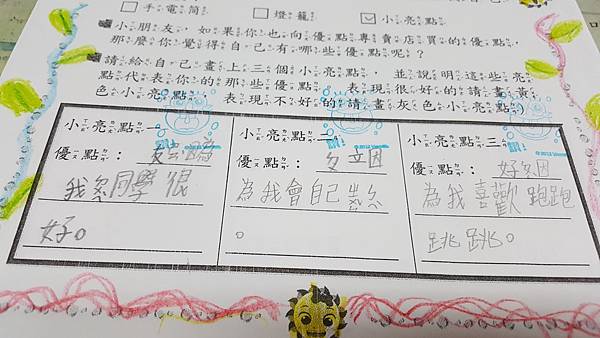 手電筒 燈籠 小亮點
小朋友，如果你也向優點專賣店買的優點，
那麼你覺得自己有哪些優點呢？
請給自己畫上三個小亮點，並說明這些亮
點代表你的那些優點。表現很好的請畫黃
色小亮點；表現不好的請畫灰色小亮點）
小亮點一
優點：
我 同學很
好。
小亮點二
優點：因
為我會自己
。
小亮點三
優點：好 因
為我喜歡跑跑
跳跳。